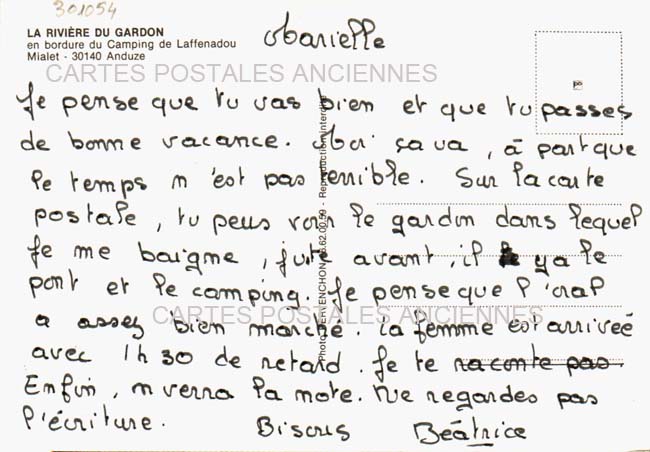 301054
LA RIVIÈRE DU GARDON
en bordure du Camping de Laffenadou
Mialet - 30140 Anduze
Marielle
CARTES POSTALES ANCIENNES
Je pense que tu vas bien et que tu passes
de bonne vacance. Moi ça va, à part que
le temps n'est pas terrible. Sur la carte
postale, tu peus voir le gardon dans lequel
je me baigne, juste avant, il y a le
pont et le camping. Je pense que l'oral
CARTES POSTALES ANCIENNES
a assez bien marché. la femme est arriveé
avec 1h30 de retard. Je te raconte pas.
Enfin, on verra la note. Ne regardes pas
l'écriture. Bisous Béatrice
Reproduction interdite